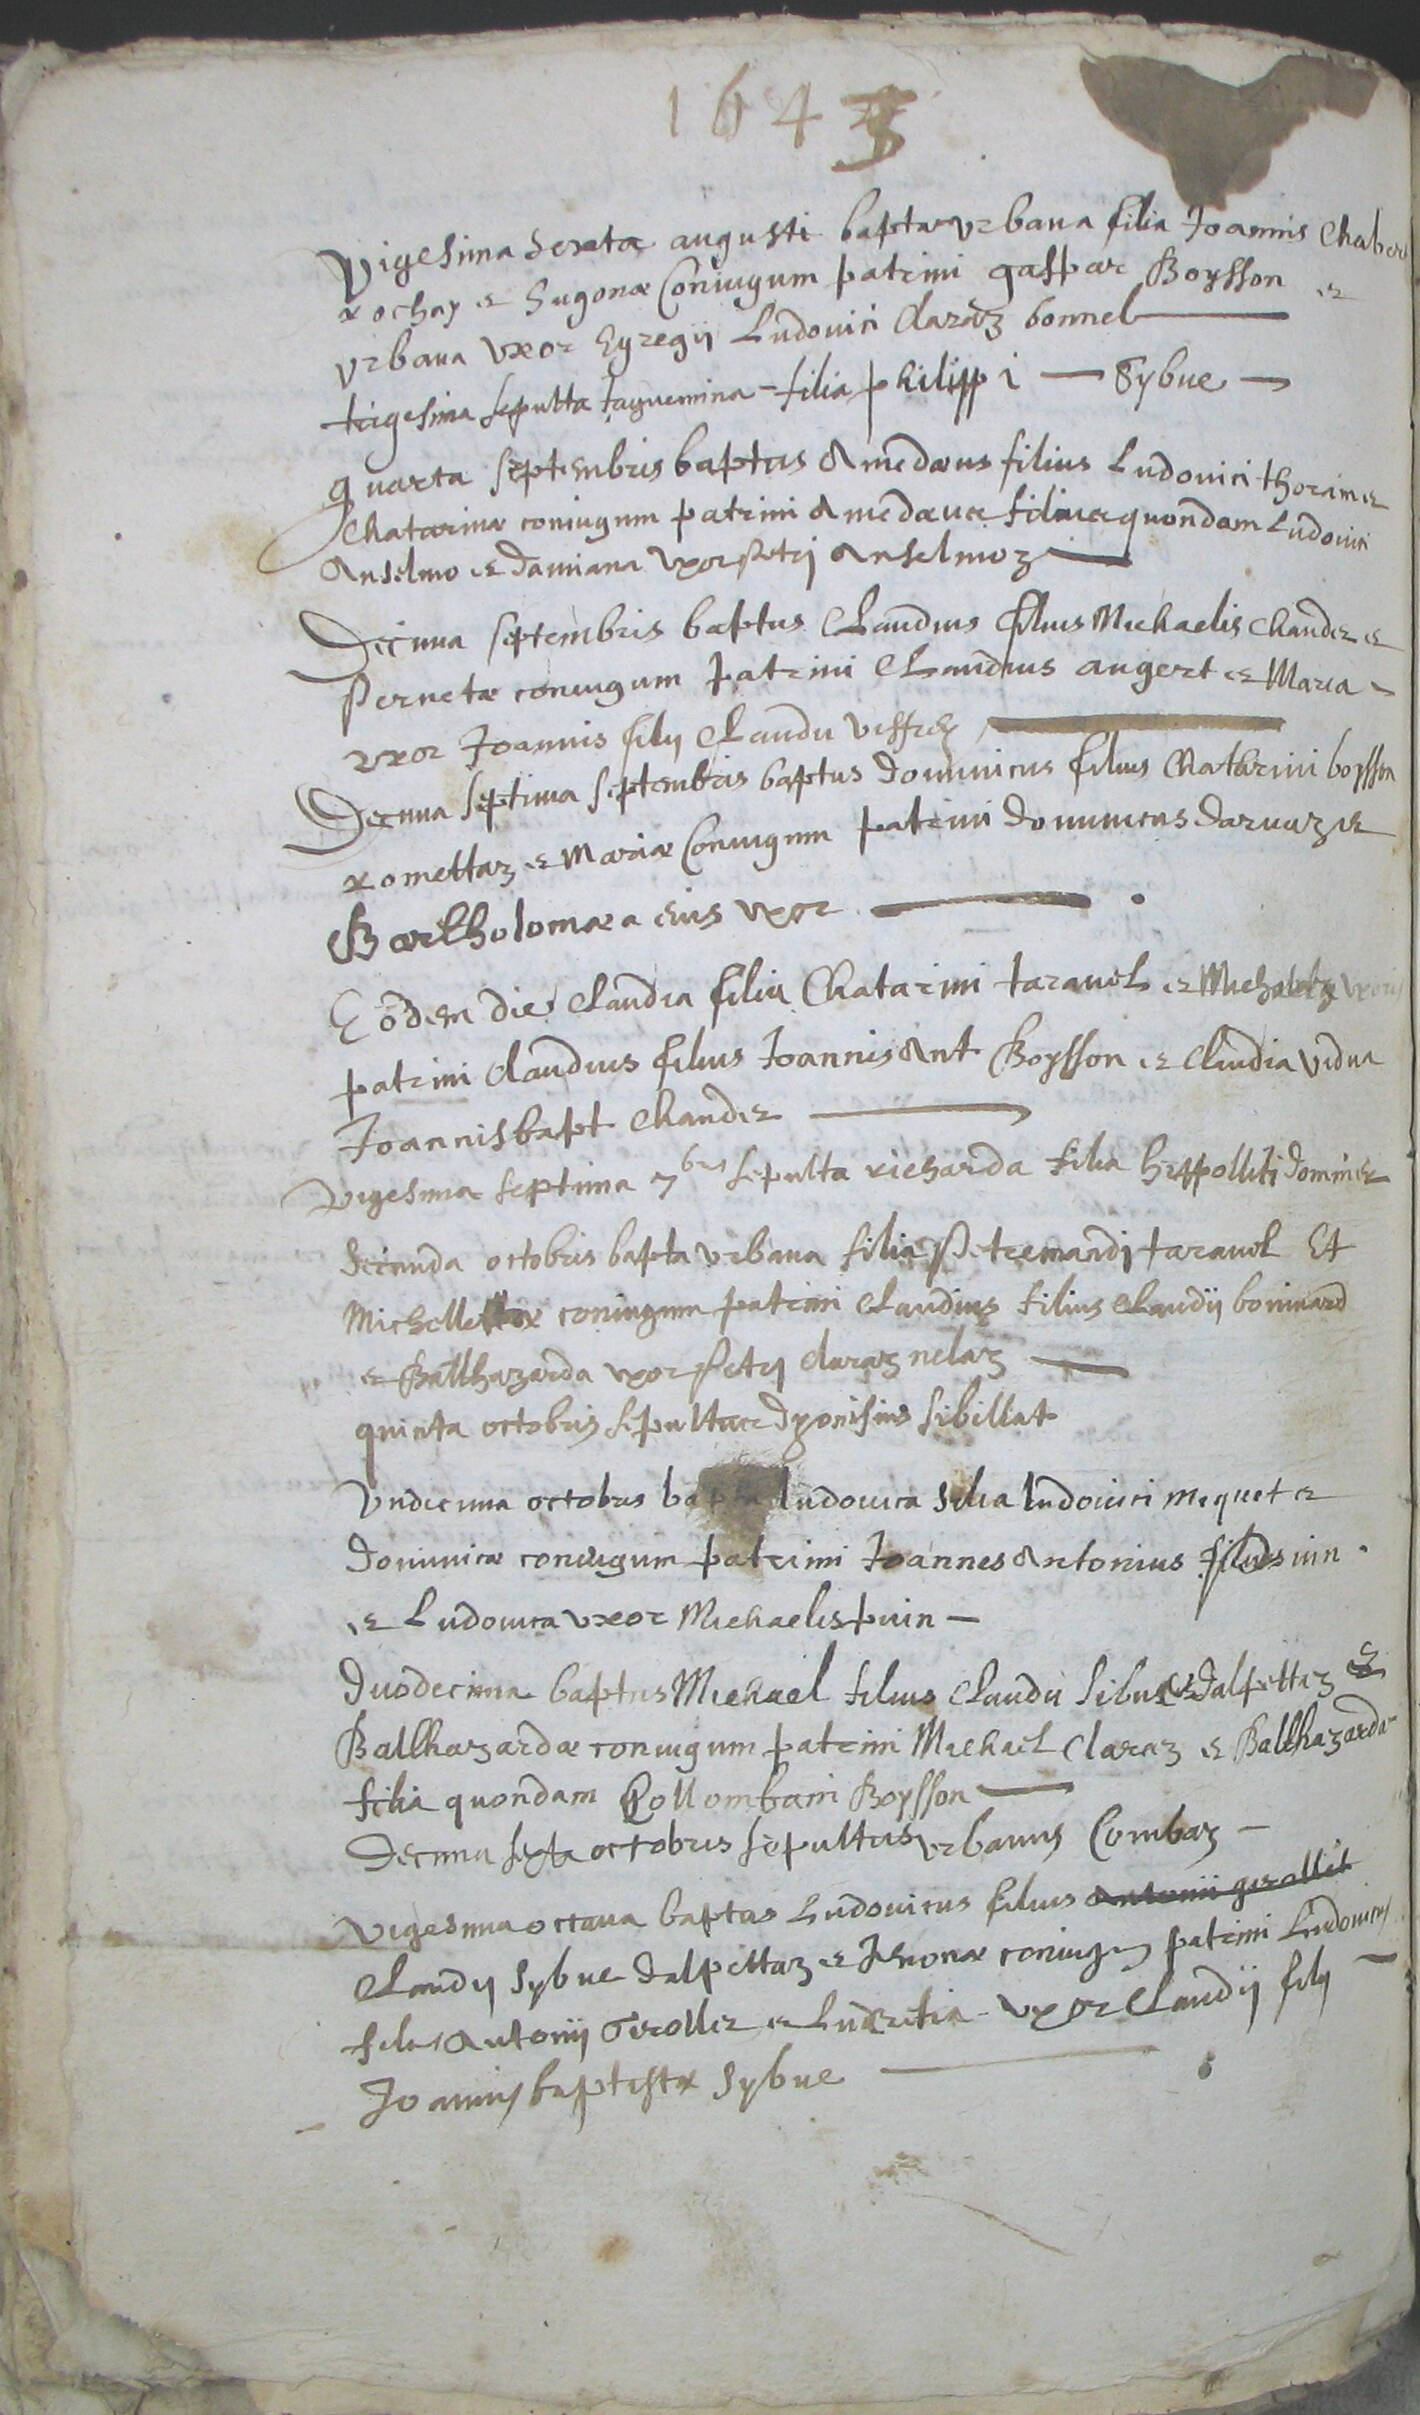 1643
Vigesima sexta augusti bapta urbana filia Joannis Chabod
rochay et hugonæ Coniugum patrini gaspar Boysson et
urbana uxor Egregii Ludovici claraz bonnel
trigesima sepulta Jaquemina filia philippi Sybue
quarta septembris baptus Amedæus filius Ludovici thorin et
Chatarinæ coniugum patrini Amedæus filius quondam Ludovici
Anselmo et damiana uxor petri Anselmoz
Decima septembris baptus Claudius filius Michaelis Chander et
pernetæ coniugum patrini Claudius augert et Maria
uxor Joannis filij Claudii
Decima septima septembris baptus dominicus filius Chatarini boysson
romettaz et Mariæ Coniugum patrini dominicus darvaz et
Bartholomæa eius uxor
Eodem die Claudia filia Chatarini taravel et uxoris
patrini Claudius filius Joannis Ant Boysson et Claudia vidua
Joannis bapt Chander
Vigesima septima 7bris sepulta richarda filia hippolliti
Secunda octobris bapta urbana filia petremandj taravel Et
Michellettæ coniugum patrini Claudius filius Claudij bonivard
et Balthazarda uxor petrj claraz nelaz
quinta octobris sepultus dyonisius sibillat
Undecima octobris bapta ludovica filia ludovici miquet et
dominicæ coniugum patrini Joannes Antonius
et Ludovica uxor Michaelis
duodecima baptus Michael filius Claudii Sibue dalpettaz et
Balthazardæ coniugum patrini Michael Claraz et Balthazarda
filia quondam Collombani Boysson
Decima sexta octobris sepultus urbanus Combaz
Vigesima octava baptus Ludovicus filius Antonii gerollet
Claudij Sybue dalpettaz et coniugum patrini Ludovicus
filius Antonij Gerollet et Lucretia uxor Claudij filij
Joannis baptistæ Sybue